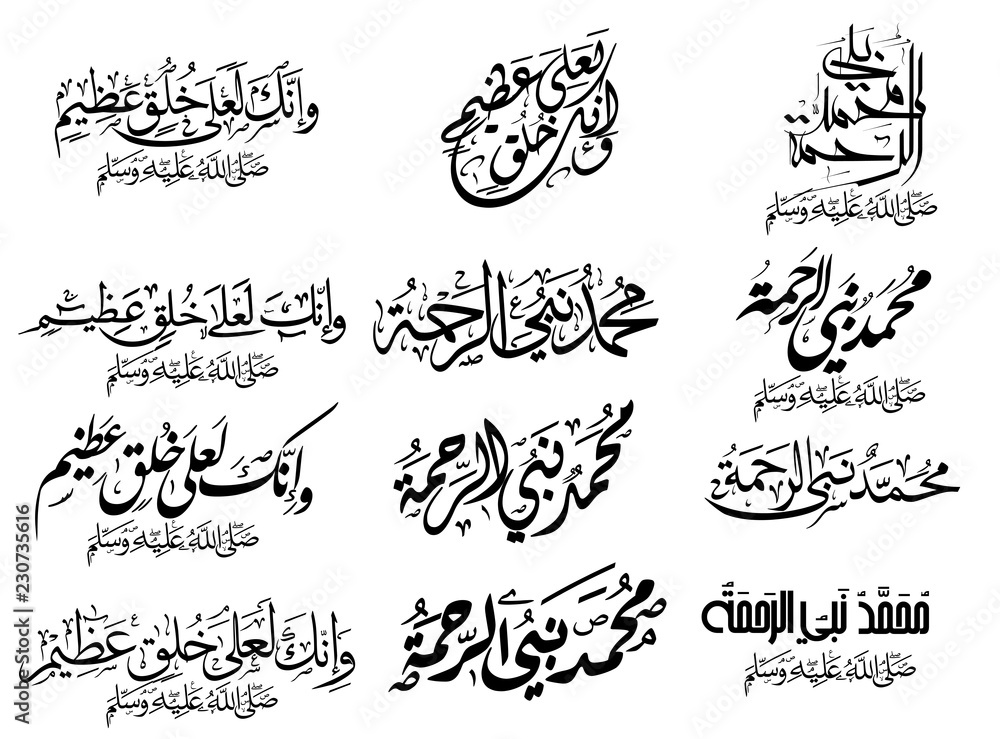 وَإِنَّكَ لَعَلَى خُلُقٍ عَظِيمٍ
صَلَّى اللَّهُ عَلَيْهِ وَسَلَّمَ
وإنك لعلى خلق عظيم
محمد نبي الرحمة
صَلَّى اللَّهُ عَلَيْهِ وَسَلَّمَ
وإنك لعلى خلق عظيم
صَلَّى اللَّهُ عَلَيْهِ وَسَلَّمَ
محمد نبي الرحمة
محمد نبي الرحمة
صَلَّى اللَّهُ عَلَيْهِ وَسَلَّمَ
وإنك لعلى خلق عظيم
صَلَّى اللَّهُ عَلَيْهِ وَسَلَّمَ
محمد نبي الرحمة
محمد نبي الرحمة
وإنك لعلى خلق عظيم
صَلَّى اللَّهُ عَلَيْهِ وَسَلَّمَ
محمد نبي الرحمة
محمد نبي الرحمة
صَلَّى اللَّهُ عَلَيْهِ وَسَلَّمَ
Adobe Stock | #230735616